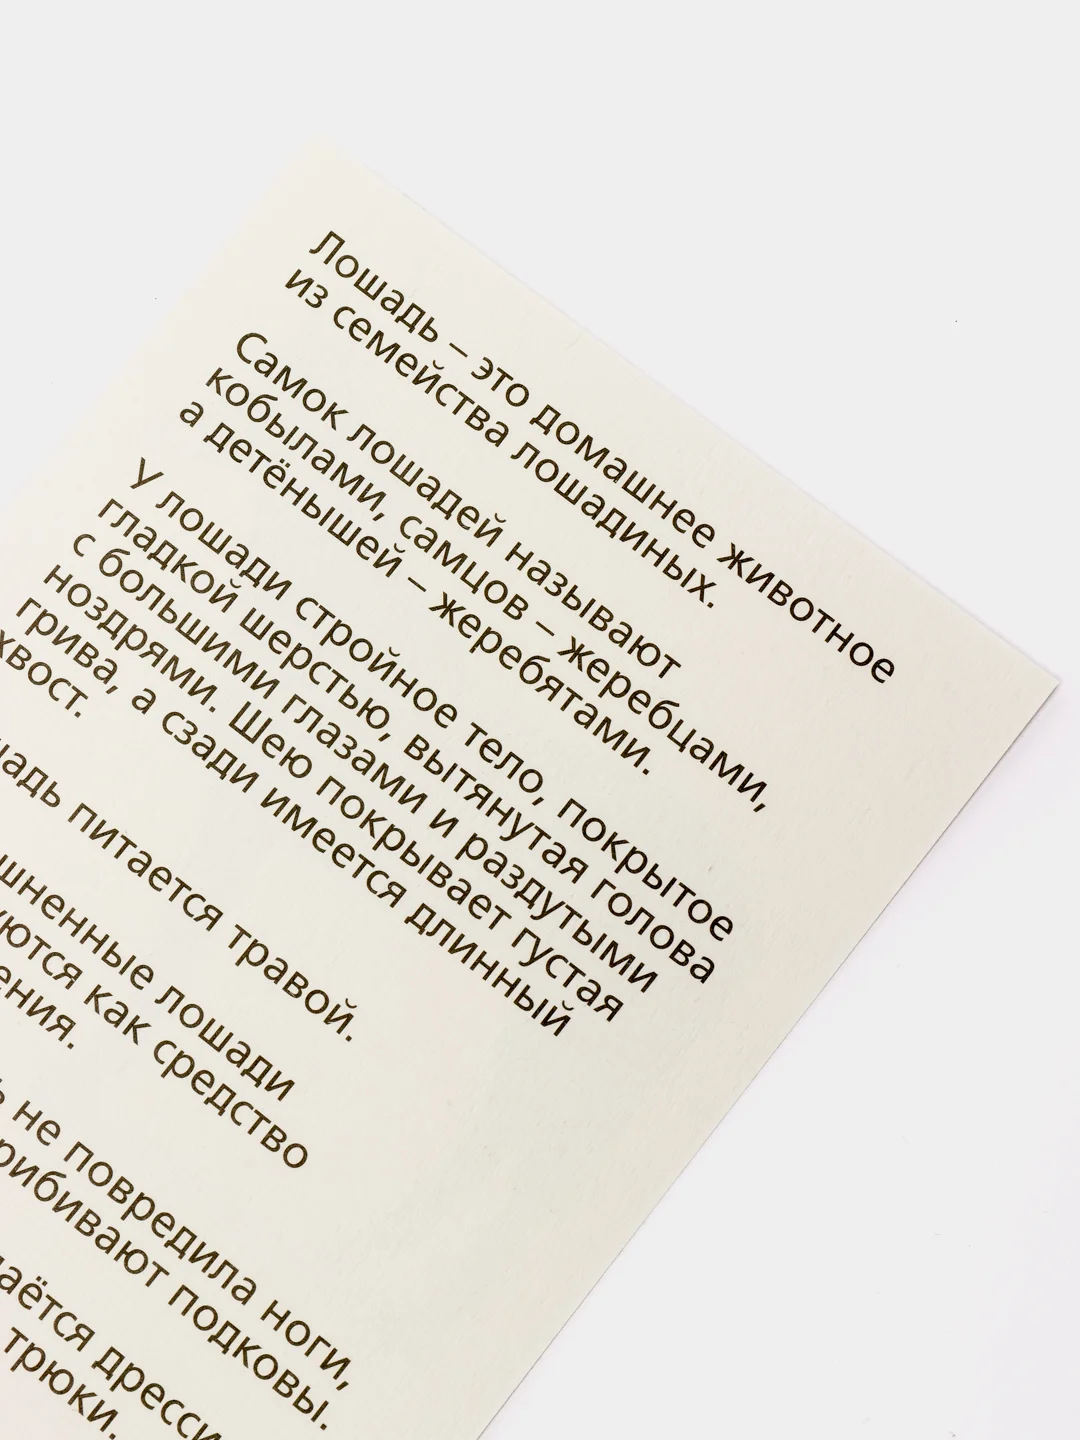 Лошадь – это домашнее животное
из семейства лошадиных.
Самок лошадей называют
кобылами, самцов – жеребцами,
а детёнышей – жеребятами.
У лошади стройное тело, покрытое
гладкой шерстью, вытянутая голова
с большими глазами и раздутыми
ноздрями. Шею покрывает густая
грива, а сзади имеется длинный
хвост.
питается травой.
лошади
как средство
не повредила ноги,
подковы.
трюки.